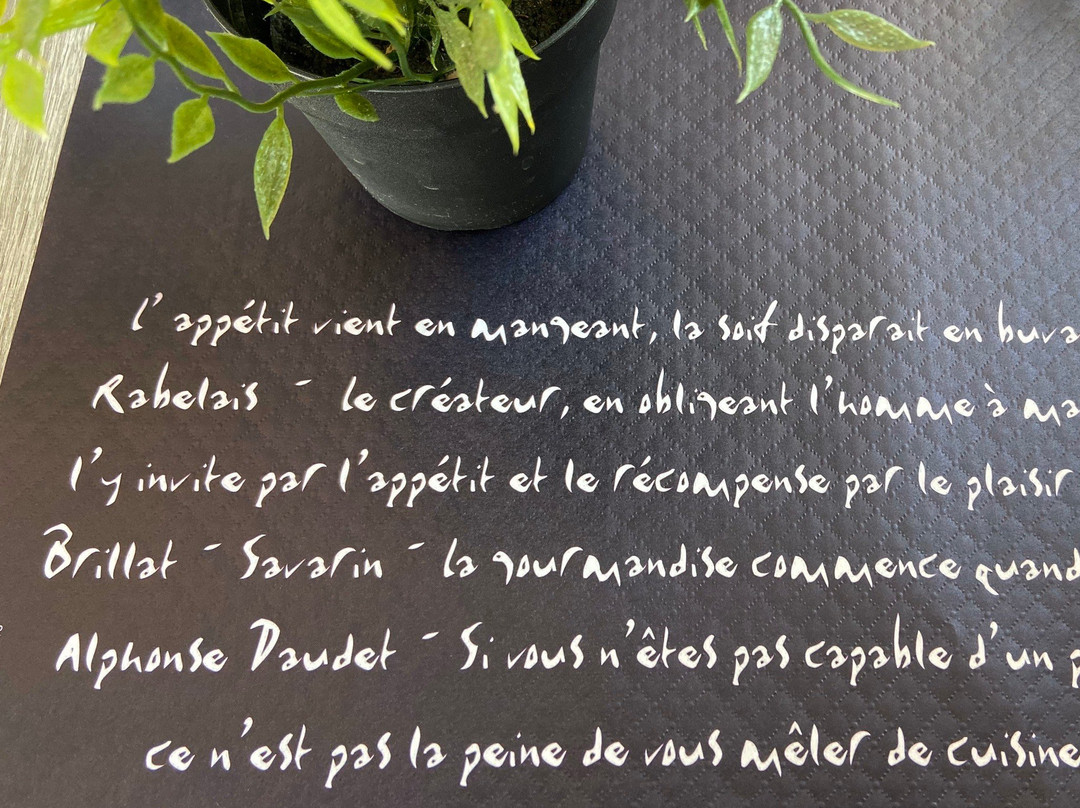 l'appétit vient en mangeant, la soif disparait en buva
Rabelais - le créateur, en obligeant l'homme à ma
l'y invite par l'appétit et le récompense par le plaisir
Brillat - Savarin - la gourmandise commence quand
Alphonse Daudet - Si vous n'êtes pas capable d'un p
ce n'est pas la peine de vous mêler de cuisine